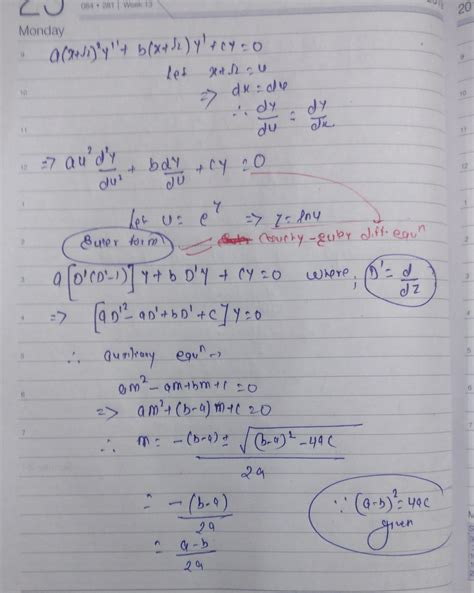 25
084 • 281 | Week 13
20
Monday
a(x+√2)²y'' + b(x+√2)y' + cy = 0
Let x+√2 = u
⇒ dx = du
∴ dy/du = dy/dx
⇒ au² d²y/du² + b dy/du + cy = 0
Let u = e^z ⇒ z = ln u
Euler form
Cauchy-Euler diff. equⁿ
a[D'(D'-1)]y + b D'y + cy = 0 where, D' = d/dz
⇒ [aD'² - aD' + bD' + c]y = 0
∴ auxiliary equⁿ →
am² - am + bm + c = 0
⇒ am² + (b-a)m + c = 0
∴ m = -(b-a) ± √(b-a)² - 4ac / 2a
= -(b-a)/2a ∵ (a-b)² = 4ac
given
= a-b/2a